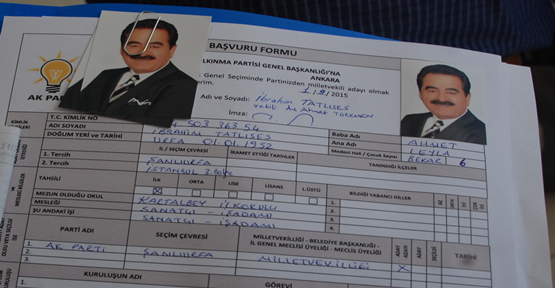 BAŞVURU FORMU
LKINMA PARTİSİ GENEL BAŞKANLIĞI'NA
ANKARA
Genel Seçiminde Partinizden milletvekili adayı olmak
erim.
1 / 9 / 2015
AK PA
Adı ve Soyadı: İbrahim TATLISES
Vekili Av. Ahmet
İmza:
T.C. KİMLİK NO
503 363 54
ADI SOYADI
İBRAHİM TATLISES
DOĞUM YERİ ve TARİHİ
URFA 01.01.1952
Baba Adı
AHMET
Ana Adı
LEYLA
Medeni Hali / Çocuk Sayısı
BEKAR 6
İL / SEÇİM ÇEVRESİ
İKAMET ETTİĞİ TARİHLER
TANINDIĞI İLÇELER
1. Tercih
ŞANLIURFA
2. Tercih
İSTANBUL 3. Bölge
TAHSİLİ
İLK
ORTA
LİSE
LİSANS
LÜSTÜ
BİLDİĞİ YABANCI DİLLER
MEZUN OLDUĞU OKUL
KARTALBEY İLKOKULU
1.
MESLEĞİ
SANATÇI - İŞADAMI
2.
ŞU ANDAKİ İŞİ
SANATÇI - İŞADAMI
3.
4.
PARTİ ADI
SEÇİM ÇEVRESİ
MİLLETVEKİLLİĞİ - BELEDİYE BAŞKANLIĞI -
İL GENEL MECLİSİ ÜYELİĞİ - MECLİS ÜYELİĞİ
ADAY
ADAYI
ADAY
SEÇİLDİ
TARİHİ
1. AK PARTİ
ŞANLIURFA
MİLLETVEKİLLİĞİ
X
2.
3.
KURULUŞUN ADI
GÖREVİ